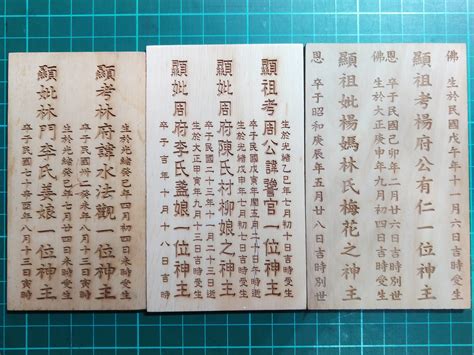 佛
生於民國戊年十一月六日吉時受生
顯祖考楊府公有仁一位神主
卒于民國卯年二月廿六日吉時別世
佛
生於大正庚申年九月初四日吉時受生
顯祖妣楊媽林氏梅花之神主
恩
卒于昭和庚辰年五月廿八日吉時別世
顯祖考周公諱譽官一位神主
生於光緒乙巳年七月初十日吉時受生
卒于民國戊寅年閏五月十日午時逝
顯妣周府陳氏村柳娘之神主
生於光緒戊申年七月初九日吉時受生
卒于民國二十九年九月二十三日吉時逝
顯妣周府李氏蓋娘一位神主
生於大正甲寅年二月十三日吉時受生
卒于吉年十月十八日吉時
生於光緒癸巳年四月初四日未時受生
顯考林府諱水法觀一位神主
卒于民國卅二癸未年八月十三日寅時
顯妣林門李氏姜娘一位神主